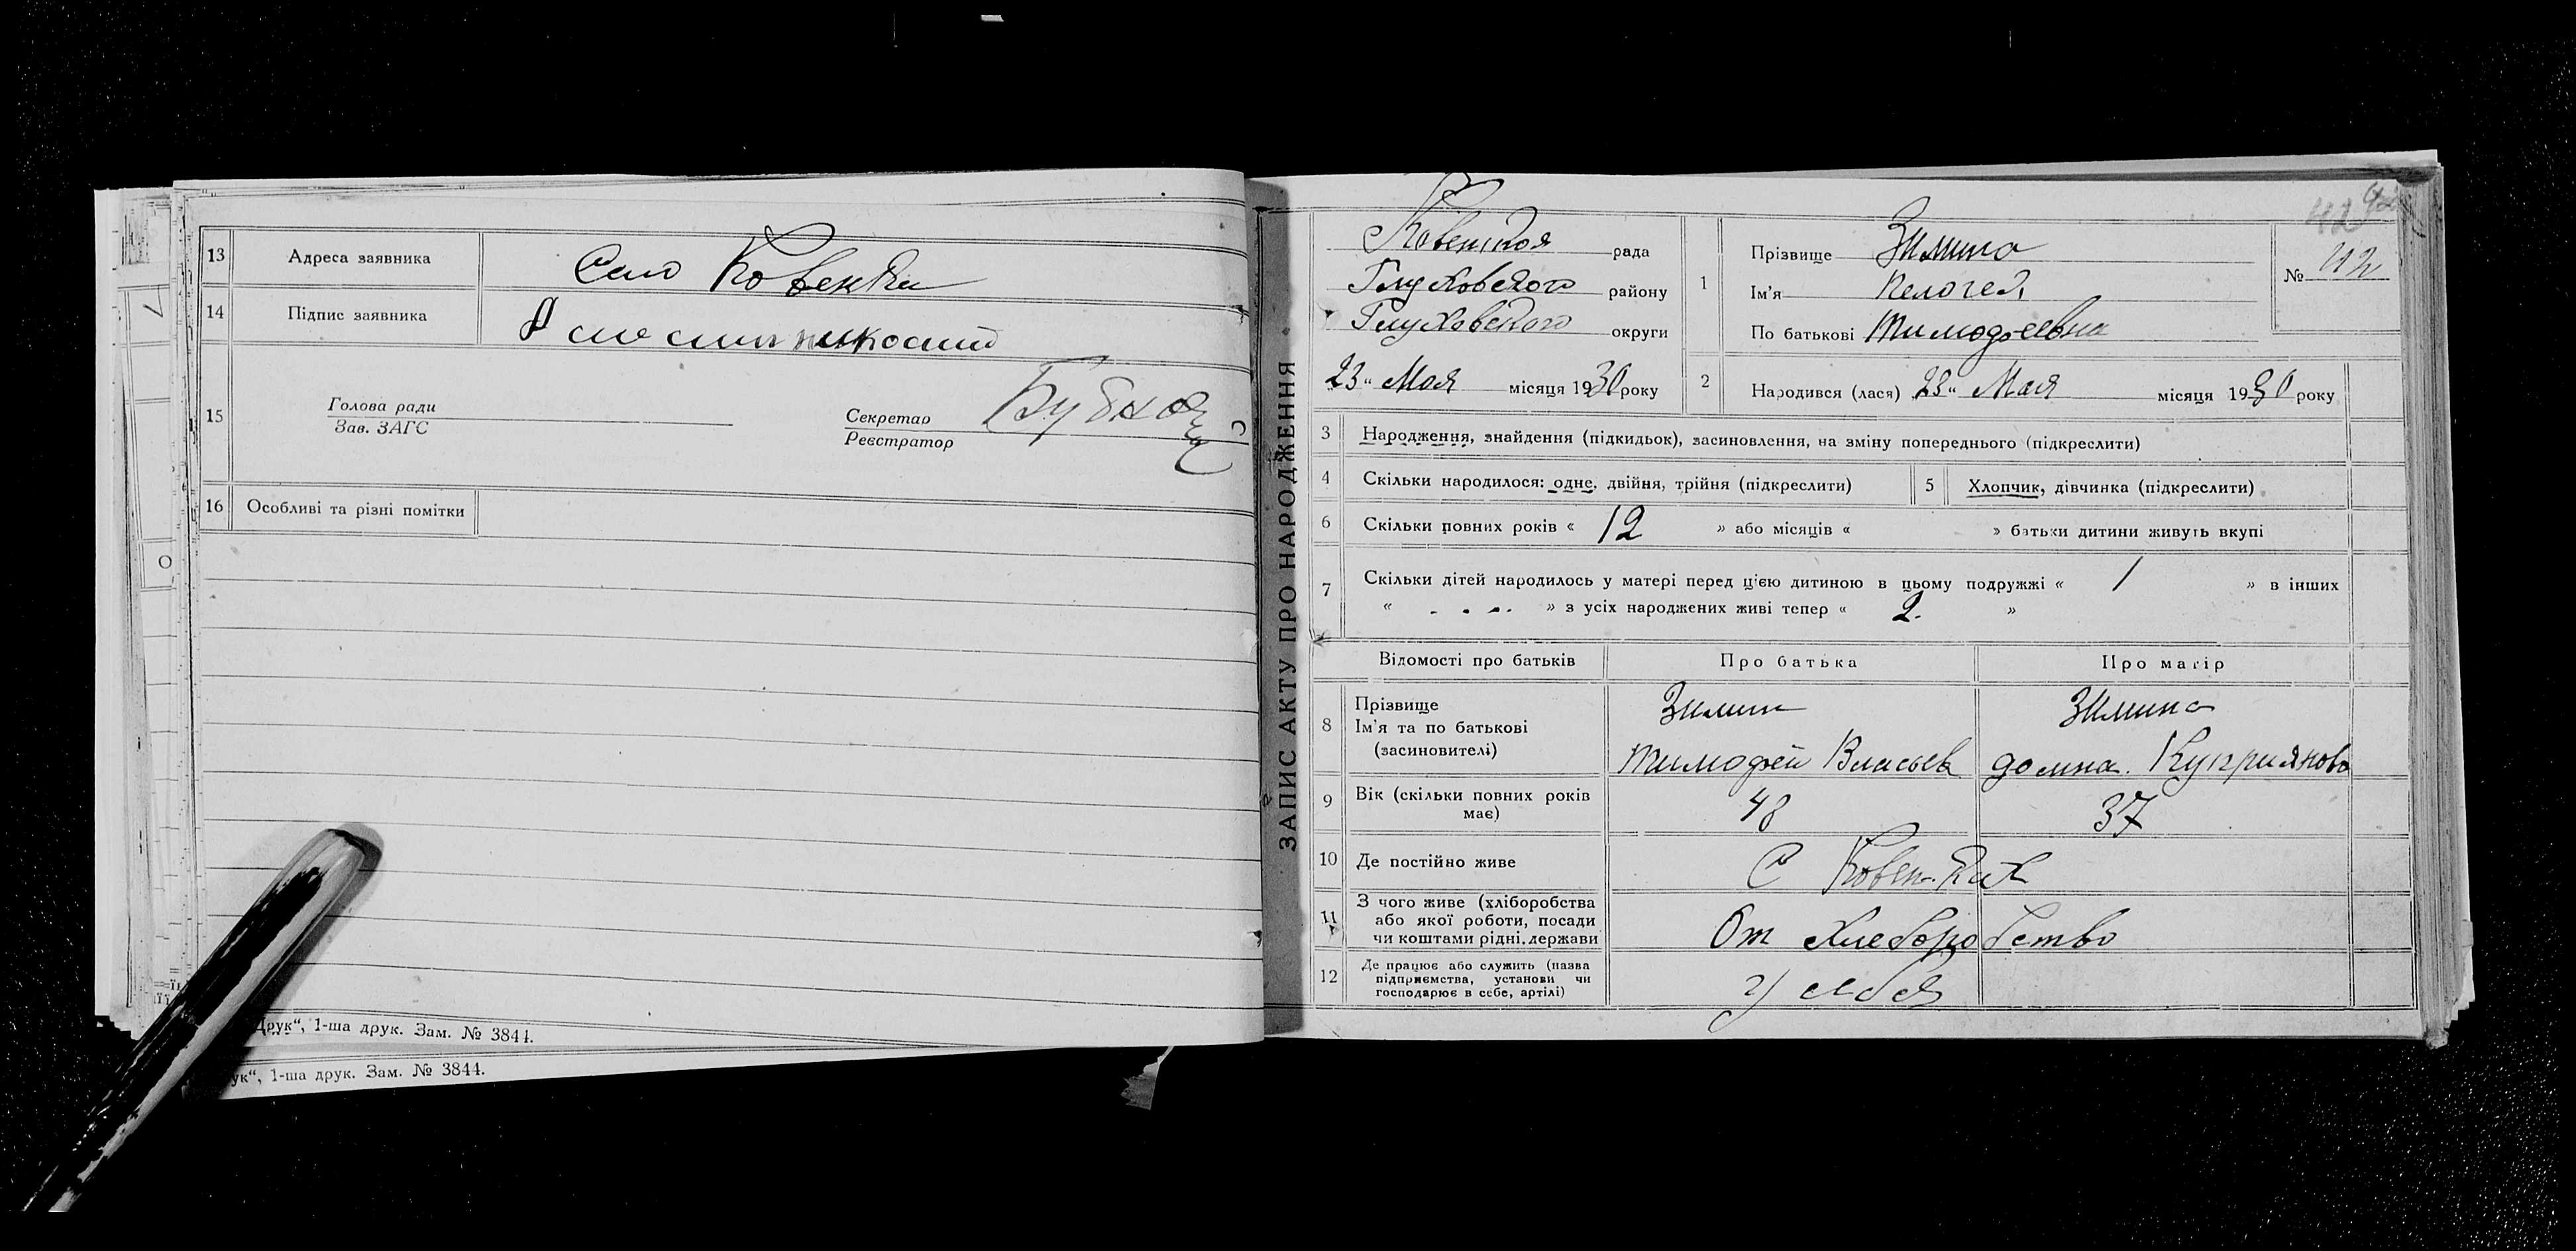 13 Адреса заявника Село Ковенки
14 Підпис заявника
15 Голова ради
Зав. ЗАГС
Секретар
Реєстратор
16 Особливі та різні помітки
Друк“, 1-ша друк. Зам. № 3844.
ук“, 1-ша друк. Зам. № 3844.
ЗАПИС АКТУ ПРО НАРОДЖЕННЯ
рада
Глуховского району
Глуховского округи
23 „ Мая місяця 1930 року
1 Прізвище Зимина
Ім'я
По батькові Тимофеевна
№
2 Народився (лася) 23 „ Мая місяця 1930 року
3 Народження, знайдення (підкидьок), засиновлення, на зміну попереднього (підкреслити)
4 Скільки народилося: одне, двійня, трійня (підкреслити)
5 Хлопчик, дівчинка (підкреслити)
6 Скільки повних років « 12 » або місяців « » батьки дитини живуть вкупі
7 Скільки дітей народилось у матері перед цією дитиною в цьому подружжі « 1 » в інших
« - - - » з усіх народжених живі тепер « 2. »
Відомості про батьків Про батька Про матір
8 Прізвище
Ім'я та по батькові
(засиновителі)
Зимин
Тимофей Власьев
Зимина
Домна. Куприянова
9 Вік (скільки повних років
має)
48 37
10 Де постійно живе С Ковенках
11 З чого живе (хліборобства
або якої роботи, посади
чи коштами рідні. держави
От Хлеборобство
12 Де працює або служить (назва
підприємства, установи чи
господарює в себе, артілі)
у себя